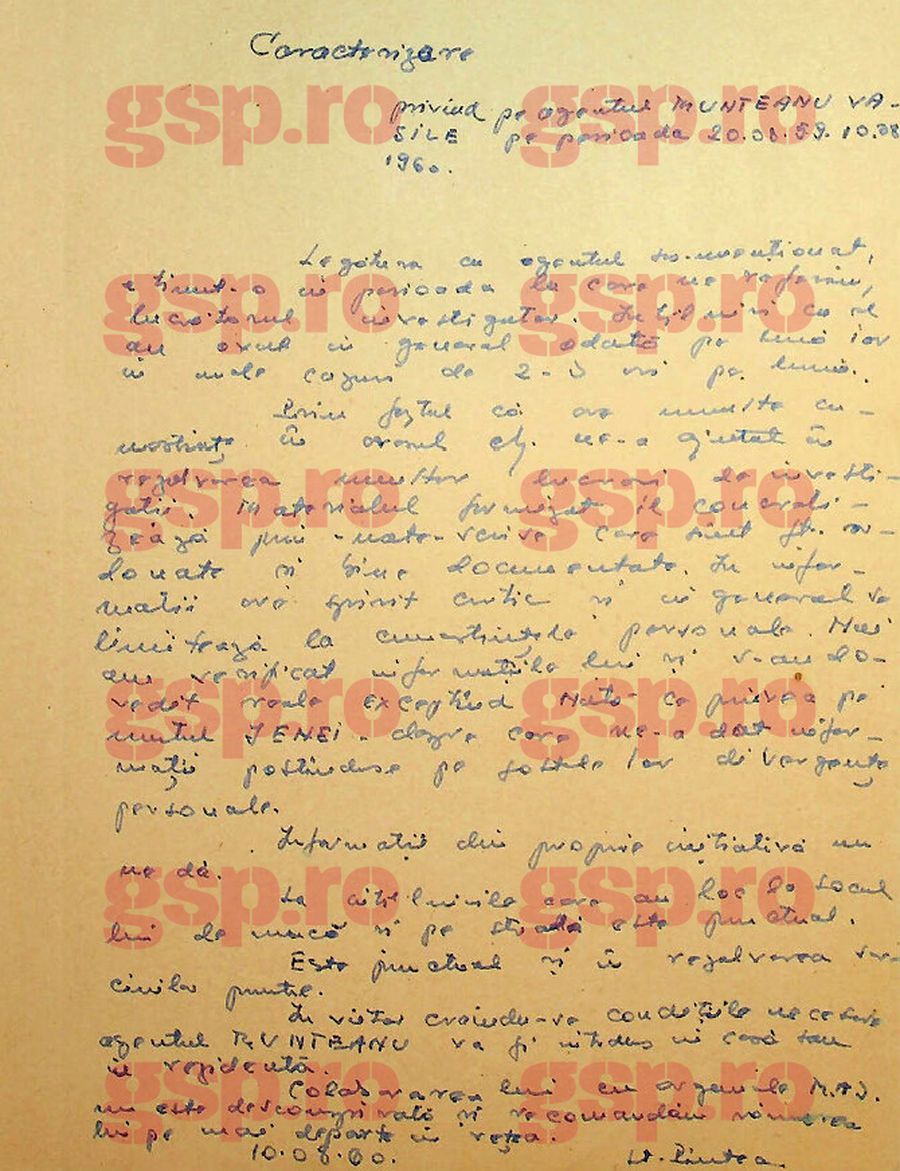 Caracterizare
privind pe agentul MUNTEANU VA-
SILE pe perioada 20.08.59. 10.08
1960.
Legătura cu agentul sus-menționat,
a ținut-o în perioada la care ne referim,
lucrătorul investigator. Întîlniri cu el
au avut în general odată pe lună iar
în unele cazuri de 2-3 ori pe lună.
Prin faptul că are multe cu-
noștințe în orașul Cluj ne-a ajutat în
rezolvarea multor lucrări de investi-
gații. Materialul furnizat îl concreti-
zează prin note scrise care sînt
și bine documentate. În infor-
mații are spirit critic și în general se
limitează la cunoștințele personale. Noi
am verificat informațiile lui și s-au do-
vedit reale exceptînd Nota ce privea pe
numitul JENEI. despre care ne-a dat infor-
mații postinduse pe fostele lor divergențe
personale.
Informații din proprie inițiativă nu
ne dă.
La întîlnirile care au loc la locul
lui de muncă și pe stradă este punctual.
Este punctual și în rezolvarea sar-
cinilor
În viitor creindu-se condițiile necesare
agentul MUNTEANU va fi introdus în casă sau
în rezidență.
Colaborarea lui cu organele M.A.I.
nu este desconspirată și recomandăm
lui pe mai departe în rețea.
10.08.60. Lt. Pintea
gsp.ro gsp.ro
gsp.ro gsp.ro
gsp.ro gsp.ro
gsp.ro gsp.ro
gsp.ro gsp.ro
gsp.ro gsp.ro